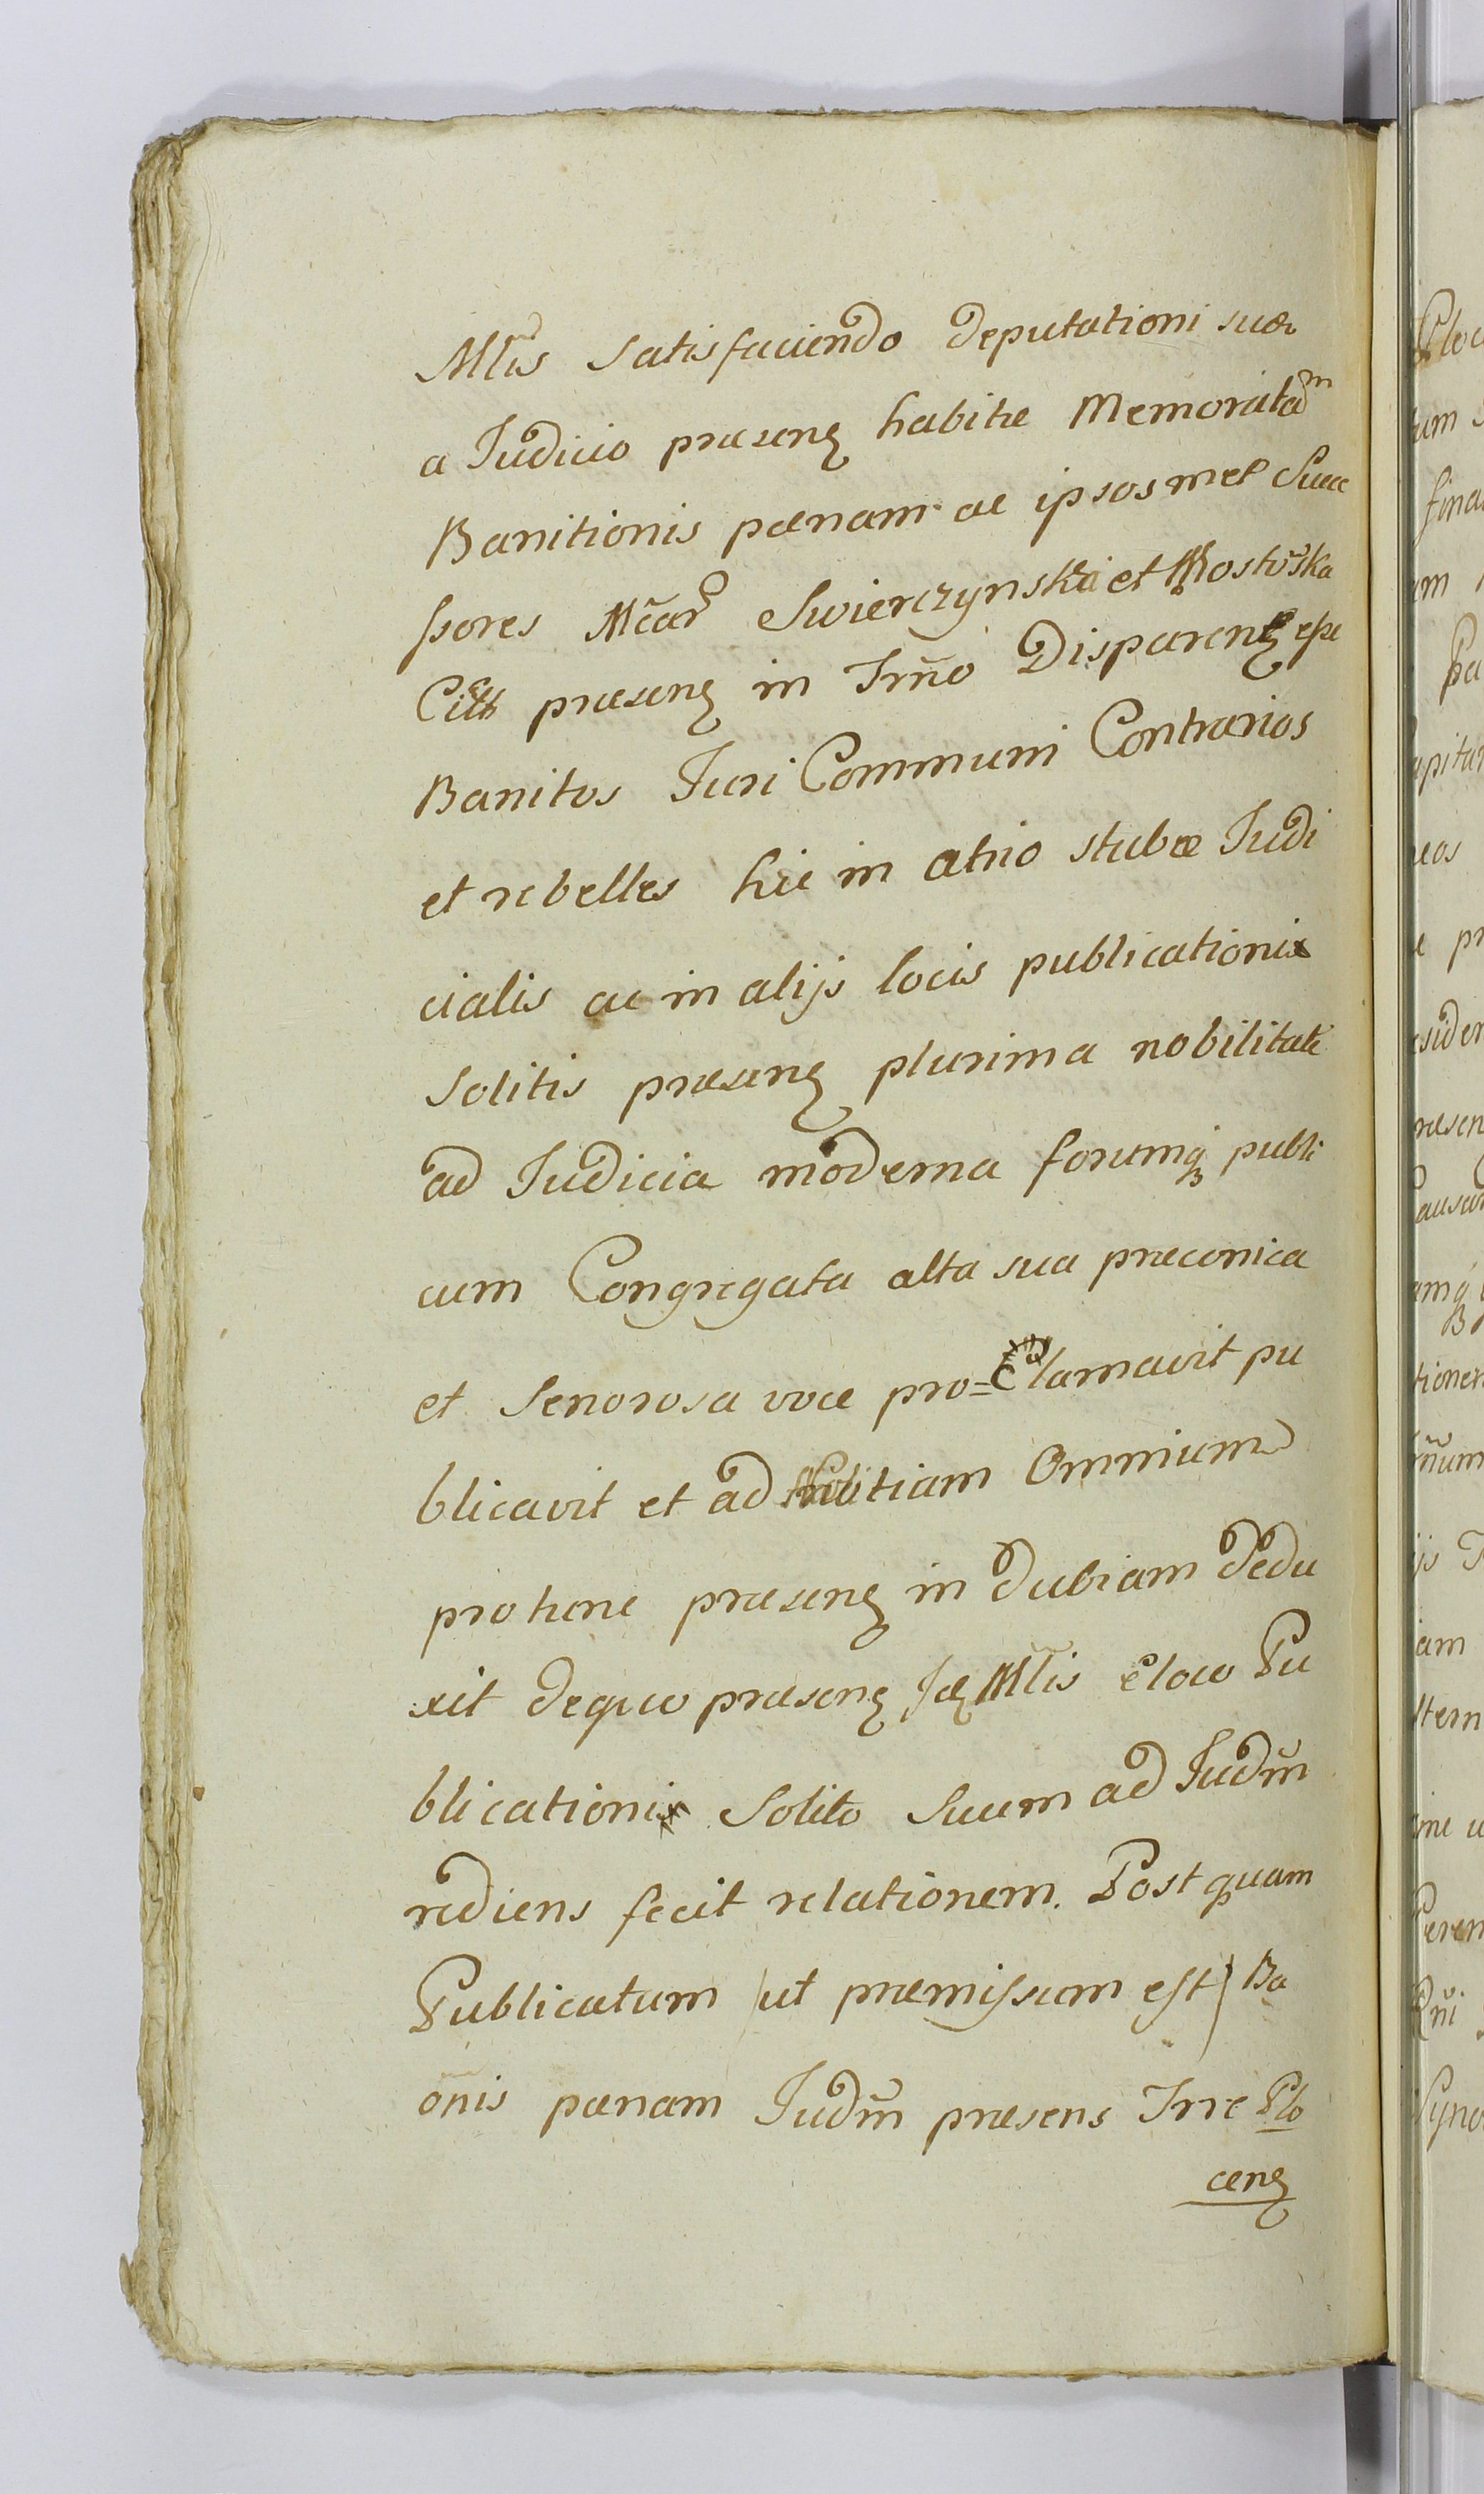 Mlis̃ satisfaciendo deputationi suæ
a Judicio præsenꝫ habitæ Memoratam
Banitionis pœnam ac ipsosmet Succe
ssores Mcar̃ Swierczynska et Mostowska
Citt præsenꝫ in Trño Disparenꝫ esse
Banitos Juri Communi Contrarios
et rebelles hic in atrio stubæ Judi
cialis ac in alijs locis publicationi
solitis præsenꝫ plurima nobilitate
ad Judicia moderna forumqꝫ publi
cum Congregata alta sua præconica
et senorosa voce pro=Clamavit pu
blicavit et ad notitiam Omnium
pro tunc præsenꝫ in dubiam dedu
xit dequo præsenꝫ Jdꝫ Mlis̃ e loco Pu
blicationi solito suum ad Judm̃
rediens fecit relationem. Post quam
Publicatum (ut præmissum est) Ba
oñis pœnam Judm̃ præsens Trre Plo
cenꝫ